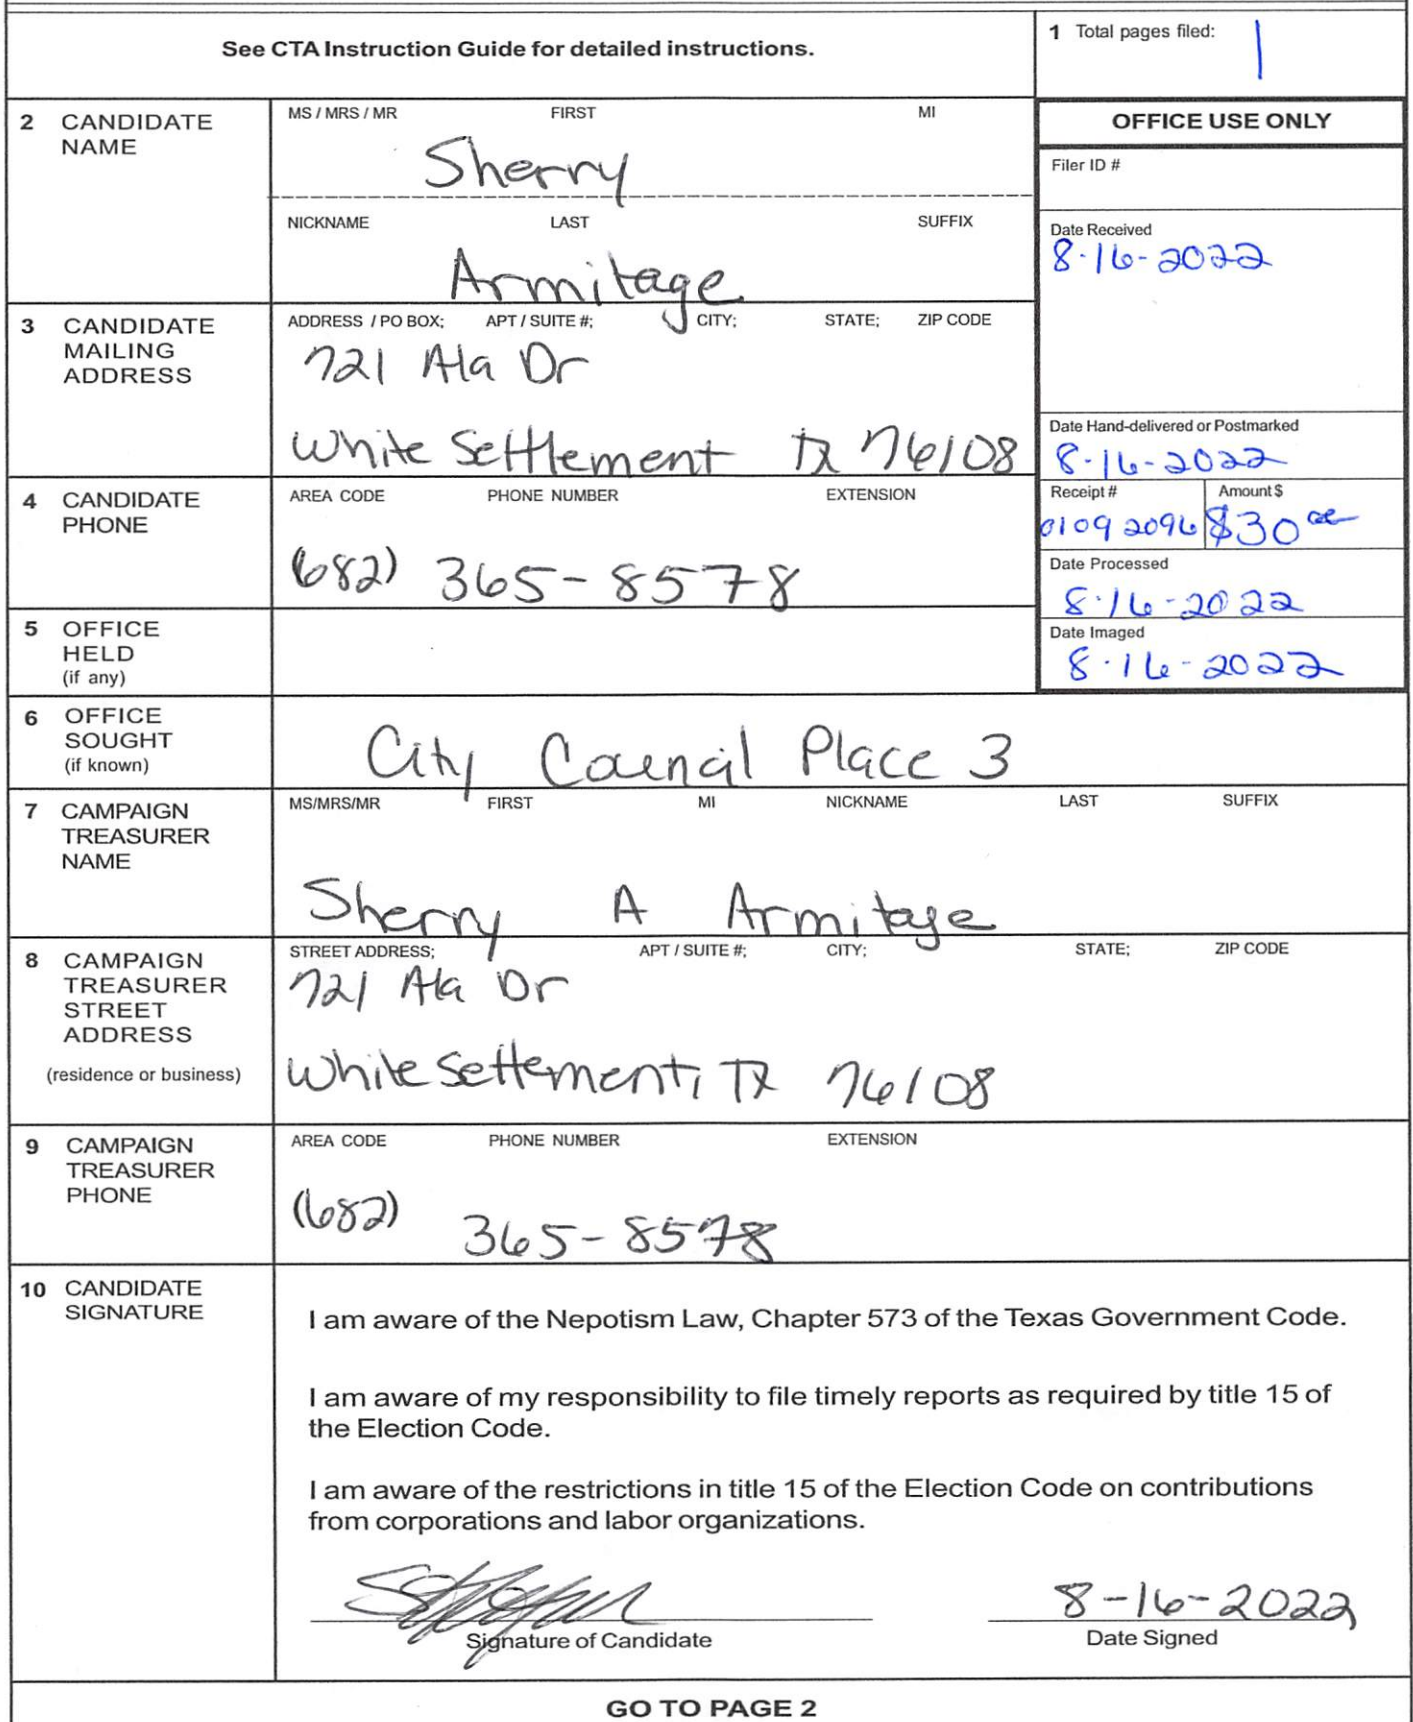 See CTA Instruction Guide for detailed instructions.
1 Total pages filed: 1
2 CANDIDATE NAME
MS / MRS / MR FIRST MI
Sherry
NICKNAME LAST SUFFIX
Armitage
OFFICE USE ONLY
Filer ID #
Date Received
8-16-2022
3 CANDIDATE MAILING ADDRESS
ADDRESS / PO BOX; APT / SUITE #; CITY; STATE; ZIP CODE
721 Ala Dr
White Settlement TX 76108
Date Hand-delivered or Postmarked
8-16-2022
4 CANDIDATE PHONE
AREA CODE PHONE NUMBER EXTENSION
(682) 365-8578
Receipt # Amount $
01092096 $30 00
Date Processed
8-16-2022
Date Imaged
8-16-2022
5 OFFICE HELD (if any)
6 OFFICE SOUGHT (if known)
City Council Place 3
7 CAMPAIGN TREASURER NAME
MS/MRS/MR FIRST MI NICKNAME LAST SUFFIX
Sherry A Armitage
8 CAMPAIGN TREASURER STREET ADDRESS
(residence or business)
STREET ADDRESS; APT / SUITE #; CITY; STATE; ZIP CODE
721 Ala Dr
White Settlement, TX 76108
9 CAMPAIGN TREASURER PHONE
AREA CODE PHONE NUMBER EXTENSION
(682) 365-8578
10 CANDIDATE SIGNATURE
I am aware of the Nepotism Law, Chapter 573 of the Texas Government Code.
I am aware of my responsibility to file timely reports as required by title 15 of
the Election Code.
I am aware of the restrictions in title 15 of the Election Code on contributions
from corporations and labor organizations.
8-16-2022
Signature of Candidate Date Signed
GO TO PAGE 2